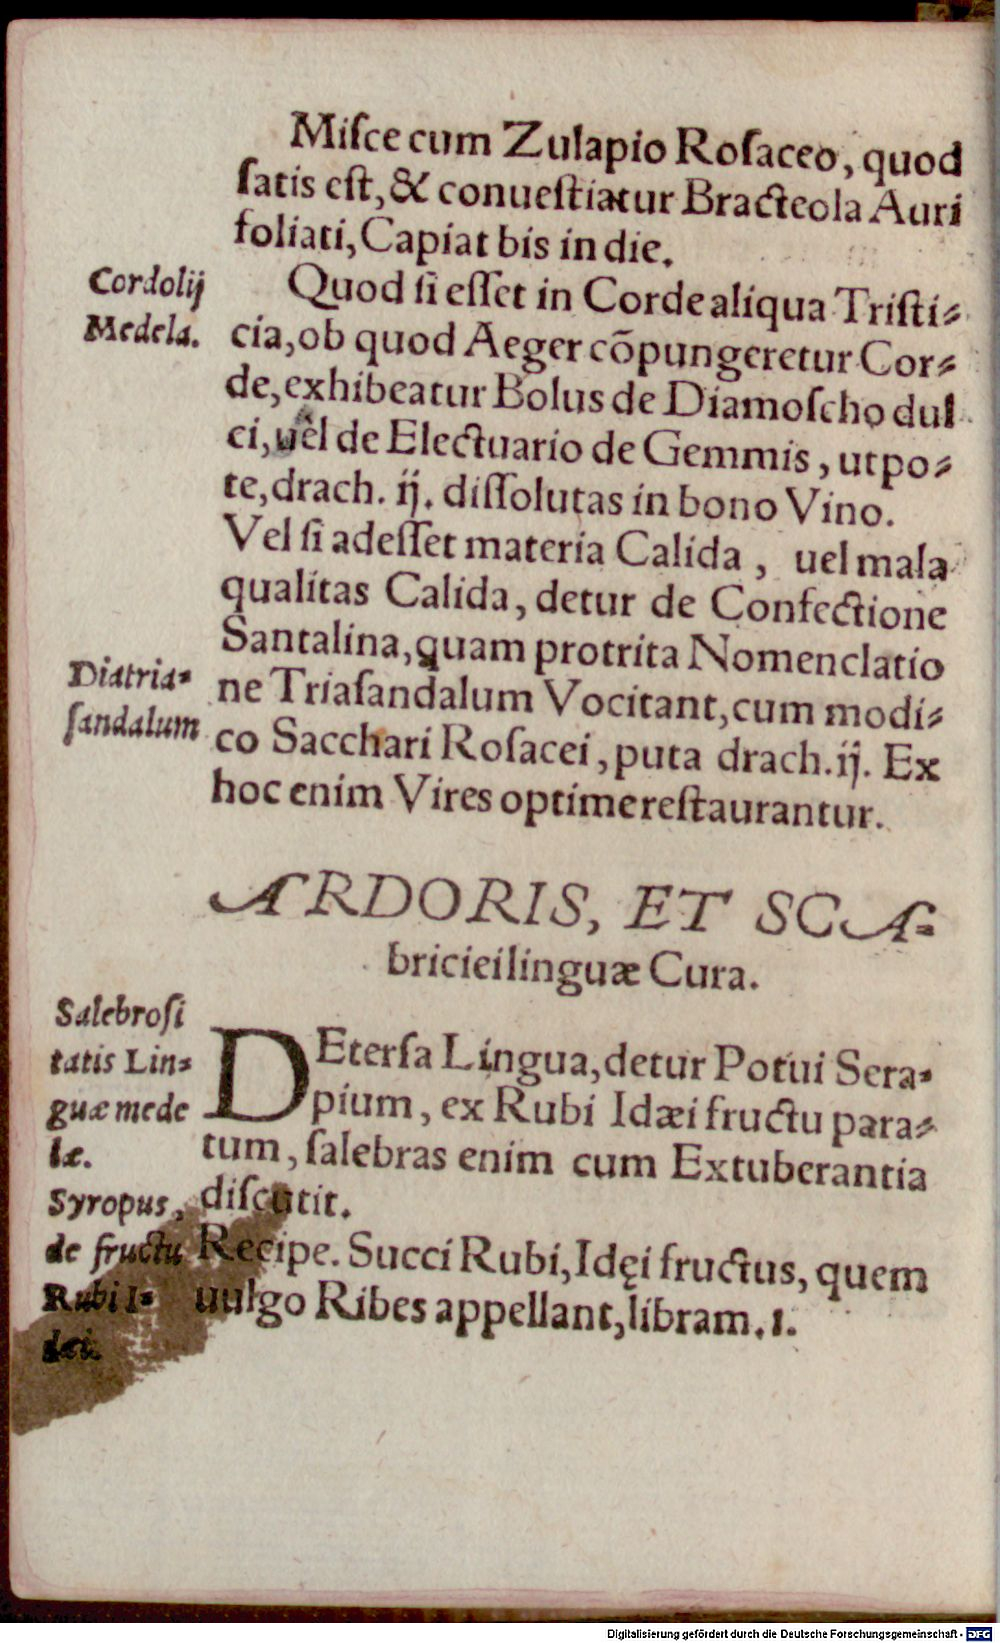 Miſce cum Zulapio Roſaceo, quod
ſatis eſt, & conueſtiatur Bracteola Auri
foliati, Capiat bis in die.
Cordolij
Medela.
Quod ſi eſſet in Corde aliqua Triſti⸗
cia, ob quod Aeger cõpungeretur Cor⸗
de, exhibeatur Bolus de Diamoſcho dul
ci, uel de Electuario de Gemmis, utpo⸗
te, drach. ij. diſſolutas in bono Vino.
Vel ſi adeſſet materia Calida, uel mala
qualitas Calida, detur de Confectione
Santalina, quam protrita Nomenclatio
Diatria⸗
ſandalum
ne Triaſandalum Vocitant, cum modi⸗
co Sacchari Roſacei, puta drach. ij. Ex
hoc enim Vires optime reſtaurantur.
ARDORIS, ET SCA⸗
briciei linguæ Cura.
Salebroſi
tatis Lin⸗
guæ mede
læ.
DEterſa Lingua, detur Potui Sera⸗
pium, ex Rubi Idæi fructu para⸗
tum, ſalebras enim cum Extuberantia
diſcutit.
Syropus,
de fructu
Rubi I⸗
dei.
Recipe. Succi Rubi, Idęi fructus, quem
uulgo Ribes appellant, libram. 1.
Digitalisierung gefördert durch die Deutsche Forschungsgemeinschaft - DFG